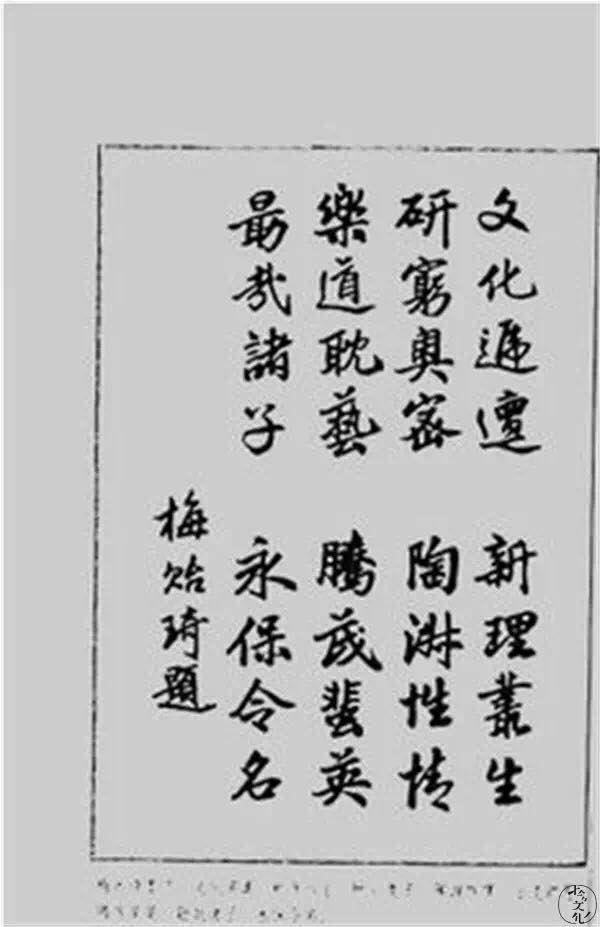 文化遞邅　新理叢生
研窮奧密　陶淑性情
樂道耽藝　騰茂蜚英
勗哉諸子　永保令名
梅貽琦題